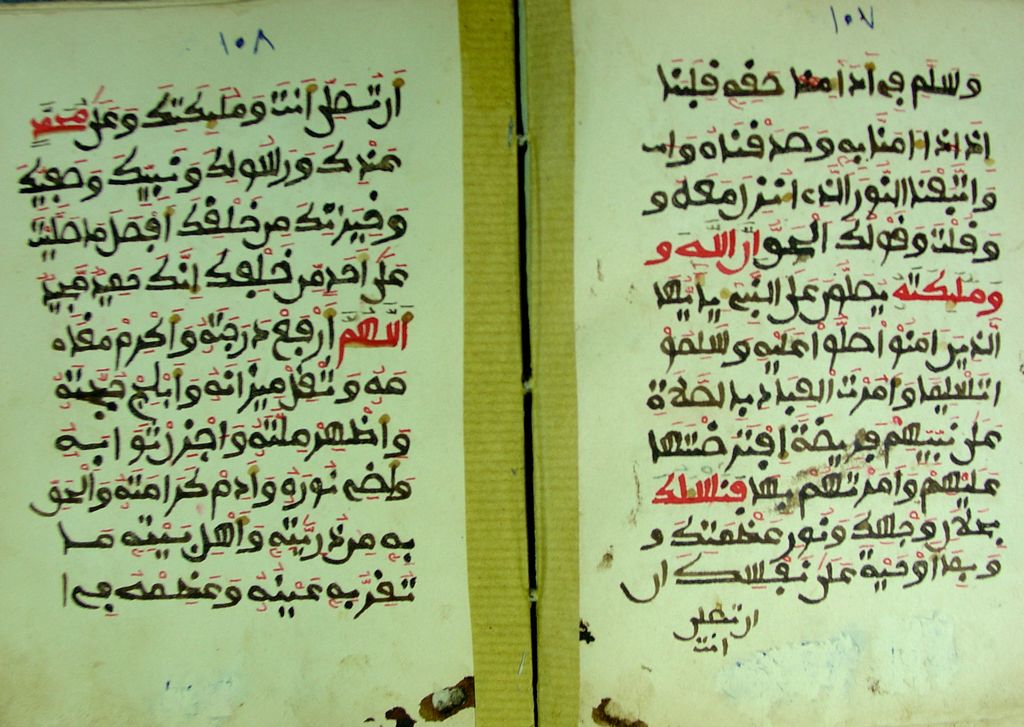 ١٠٧
وسلم في اد امنه حقه قلبنا
اذ امنا به وصدقناه وا
واتبعنا النور الذي انزل معه و
وقلت وقولك الحق ان الله و
ومليكته يصلون على النبي يا يها
الذين امنوا صلوا عليه وسلمو
اتسليما وامرت العباد بالصلاة
على نبيهم فريضة افترضتها
عليهم وامرتهم بها فنسلك
بجلال وجهك ونور عظمتك و
وبما اوجبت على نفسك ان
ان تصلي
انت
١٠٨
ان تصلي انت ومليكتك وعلى محمد
عبدك ورسولك ونبيك وصفيك
وخيرتك من خلقك افضل ما صليت
على احد من خلقك انك حميد مجيد
اللهم ارفع درجته واكرم مقاه
مه وثقل ميزانه وابلج حجته
واظهر ملته واجزل ثوابه
واضي نوره وادم كرامته والحق
به من ذريته واهل بيته ما
تقر به عينه وعظمه في ا